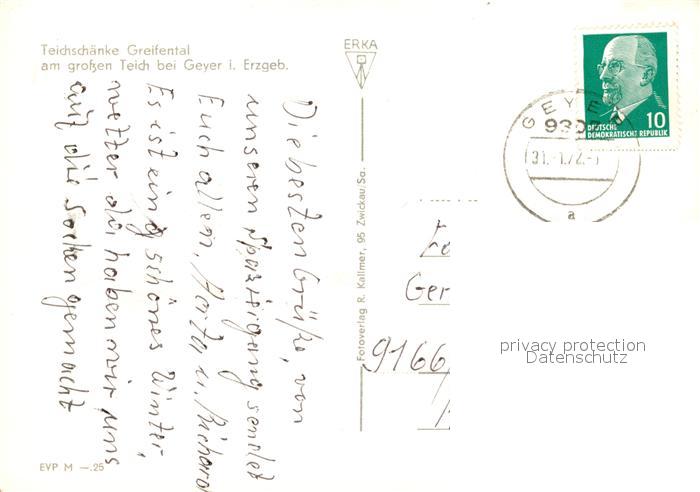 Teichschänke Greifental
am großen Teich bei Geyer i. Erzgeb.
ERKA
Die besten Grüße, von
unseren Spaziergang sendet
Euch allen, Herta u. Richard
Es ist ein schönes Winter,
wetter da haben wir uns
auf die Socken gemacht
EVP M —.25
Fotoverlag R. Kallmer, 95 Zwickau/Sa.
GEYER
9305
31.-1.72.-
a
10
DEUTSCHE
DEMOKRATISCHE REPUBLIK
Ger
9166
privacy protection
Datenschutz